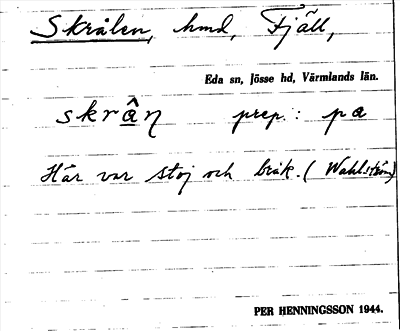 Skrålen, hmd, Fjäll,
Eda sn, Jösse hd, Värmlands län.
skrâ̠n prep.: pa
Här var stoj och bråk. (Wahlström)
PER HENNINGSSON 1944.